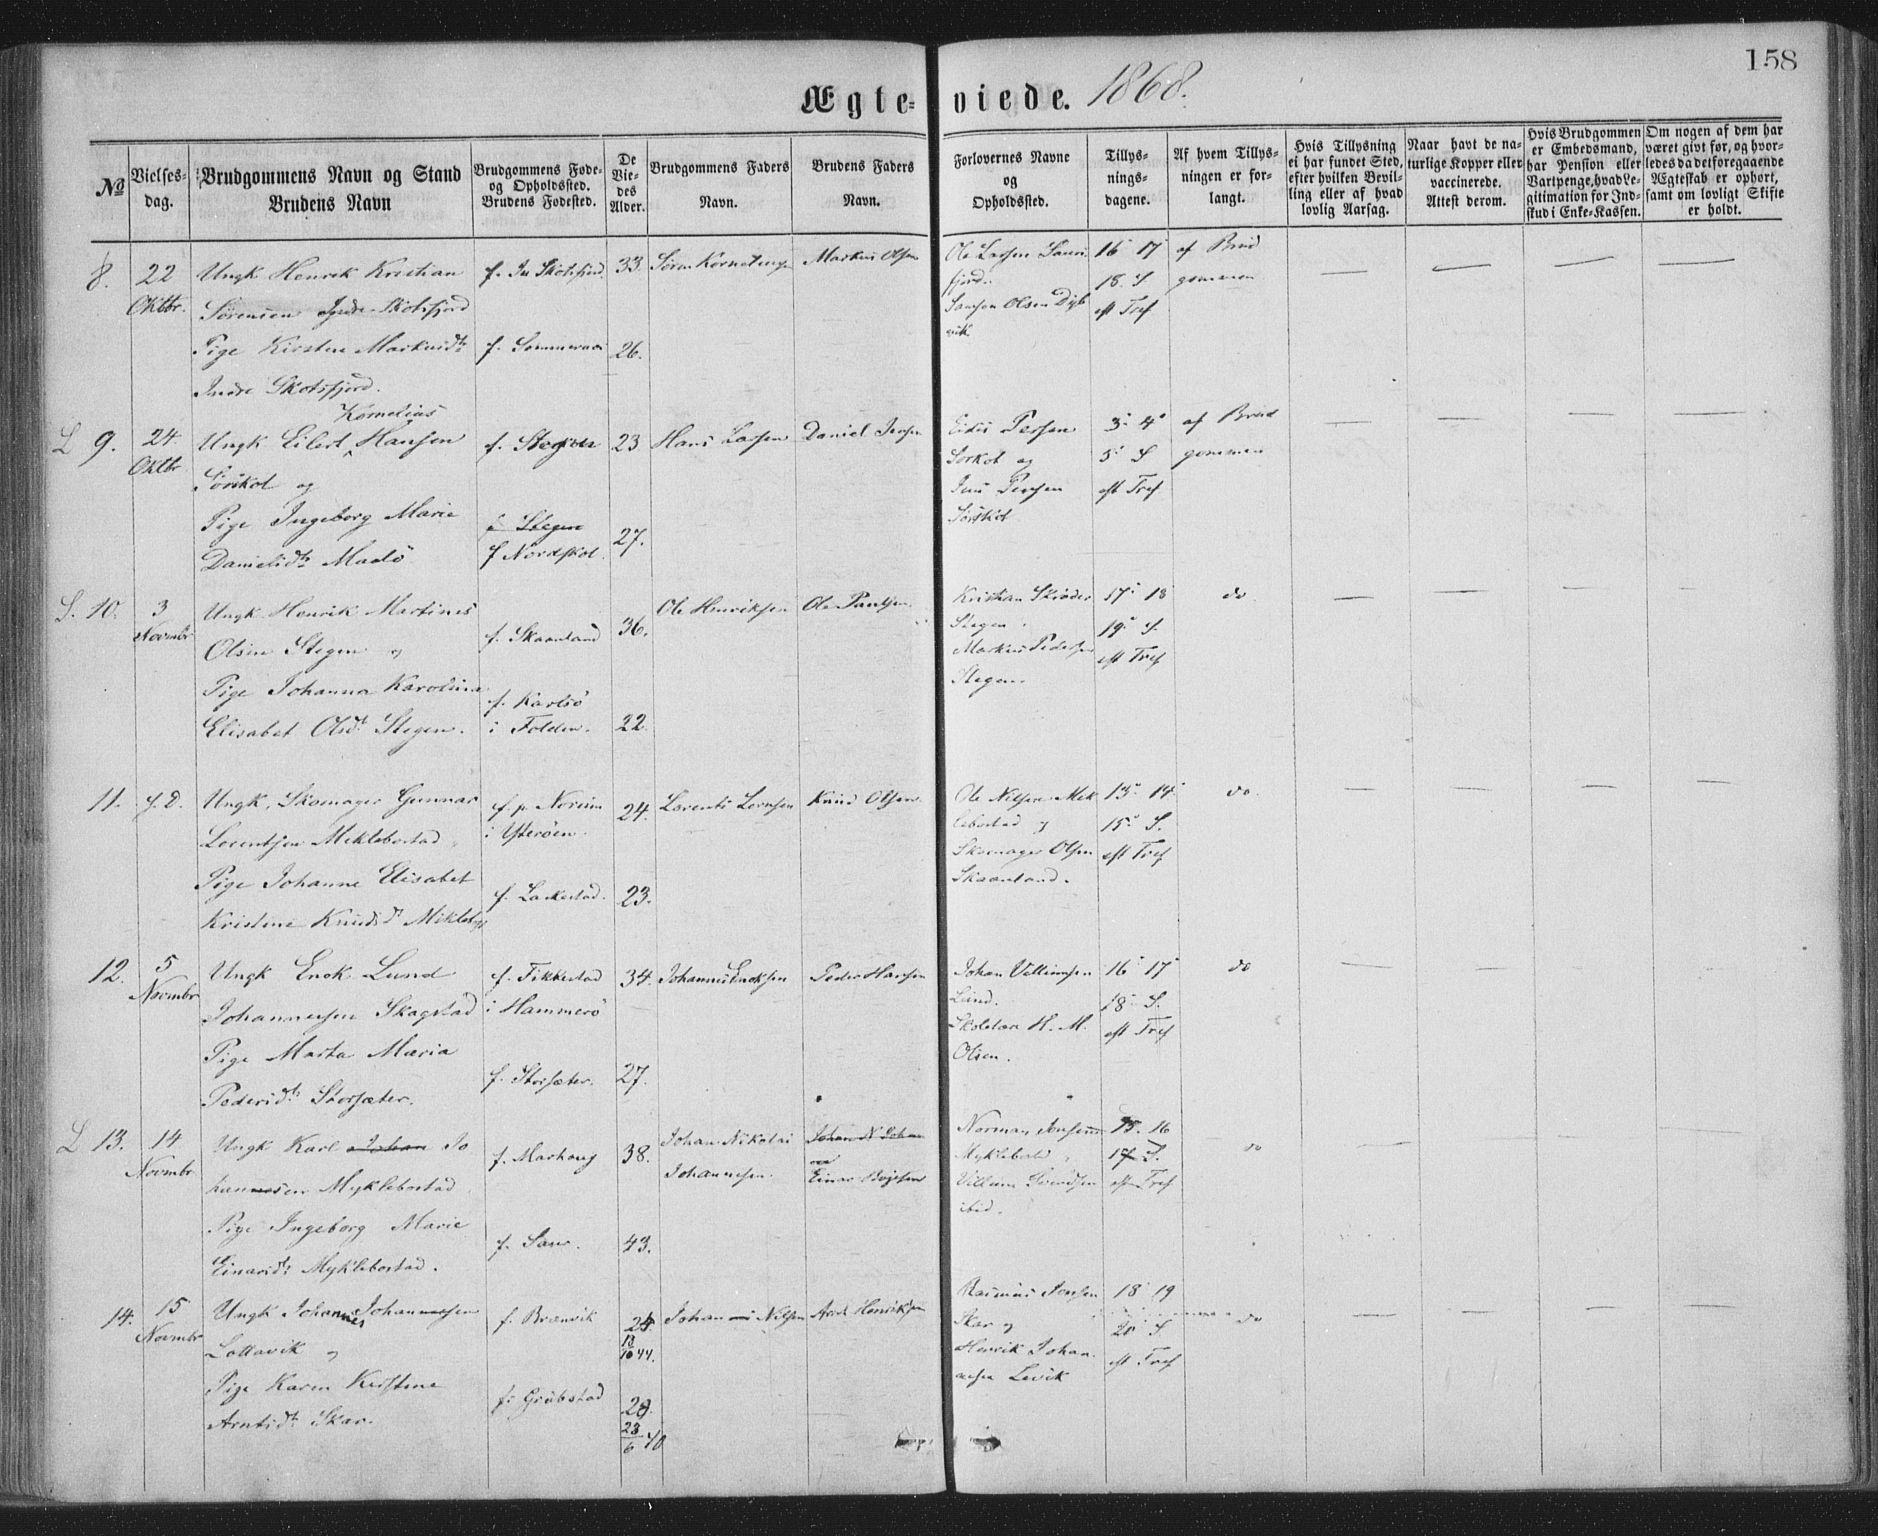 158
Ægteviede. 1868.
No
Vielsesdag.
Brudgommens Navn og Stand
Brudens Navn
Brudgommens Føde- og Opholdssted.
Brudens Fødested.
De Viedes Alder.
Brudgommens Faders Navn.
Brudens Faders Navn.
Forlovernes Navne og Opholdssted.
Tillysningsdagene.
Af hvem Tillysningen er forlangt.
Hvis Tillysning ei har fundet Sted, efter hvilken Bevilling eller af hvad lovlig Aarsag.
Naar havt de naturlige Kopper eller vaccinerede. Attest derom.
Hvis Brudgommen er Embedsmand, har Pension eller Vartpenge, hvad Legitimation for Indskud i Enke-Kassen.
Om nogen af dem har været givt før, og hvorledes da det foregaaende Ægteskab er ophørt, samt om lovligt Skifte er holdt.
8. 22 Oktbr.
Ungk Henrik Kristian
Sørensen Indre Skotsfjord
Pige Kirsten Markusdt
Indre Skotsfjord.
f. In Skotsfjord 33.
f. Sommernes 26.
Søren Kornelius
Markus Olsen
Ole Larsen
fjord.
Samson Olsen Dyb
vik.
16 17
18. S
eft Tref
af Brud
gommen
L 9. 24 Oktbr
Kornelius
Ungk Eilert Hansen
Sørskot og
Pige Ingeborg Marie
Danielsdt Maalø
f. Stegen 23
f. Stegen
f Nordskot. 27.
Hans Larsen
Daniel Jensen
Persen
Sørskot og
Jens Persen
Sørskot
3 4
5 S
eft Tref
af Brud
gommen
S. 10. 3 Novmbr
Ungk Henrik Martines
Olsen Stegen og
Pige Johanna Karolina
Elisabet Olsdt Stegen.
f. Skaanland 36.
f. Karlsø
i Folden. 22.
Ole Henriksen
Ole Paulsen.
Kristian Skrøder
Stegen
Markus Pedersen
Stegen.
17 18
19 S.
eft Tref
do
11. s. D.
Ungk. Skomager Gunnar
Lorentsen Myklebostad
Pige Johanne Elisabet
Kristine Knudsdt
f. p. Norum
i Ytterøen. 24.
f. Laskestad. 23.
Lorents
Knud Olsen
Ole Nilsen Mek
lebostad og
Skomager Olsen
Skaanland.
13 14
15 S.
eft Tref
do.
12. 5 Novmbr
Ungk Enok Lund
Johannessen Skagstad
Pige Marta Maria
Pedersdt Storsæter.
f. Fikkestad
i Hammerø 34.
f. Storsæter. 27.
Johannes Enoksen
Peder Hansen
Johan Villumsen
Lund.
H. M.
Olsen.
16 17
18 S.
eft Tref
do
L 13. 14 Novmbr
Ungk Karl Johan Jo
hannesen Myklebostad
Pige Ingeborg Marie
Einarsdt Myklebostad.
f. Marhaug 38.
f. 43.
Johan Nikolai
Johannesen.
Einar
Norman Jensen
Myklebostad
Villum Sivertsen
ibid.
15. 16
17 S.
eft Tref
do
14. 15 Novmbr
Ungk Johannes Johannesen
og
Pige Karen Kirstine
Arntsdt Skar.
f. Brænvik 24.
13
10 44.
f. Grøbstad 28.
23
6 40
Johan Nilsen
Arnt Henriksen
Rasmus Jensen
Skar og
Henrik Johan
nesen Levik
18 19
20 S.
eft Tref
do